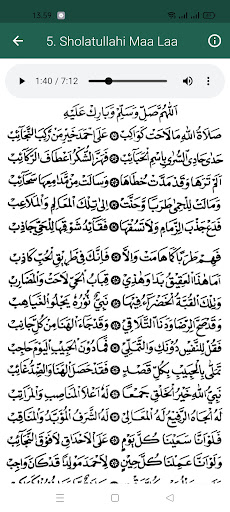 13.59
5. Sholatullahi Maa Laa
1:40 / 7:12
اَللّٰهُمَّ صَلِّ وَسَلِّمْ وَبَارِكْ عَلَيْهِ
صَلَاةُ اللهِ مَا لَاحَتْ كَوَاكِبْ ۞ عَلَى اَحْمَدْ خَيْرِ مَنْ رَكِبَ النَّجَائِبْ
حَدٰى حَادِى السُّرٰى بِاسْمِ الْحَبَائِبْ ۞ فَهَزَّ السُّكْرُ اَعْطَافَ الرَّكَائِبْ
اَلَمْ تَرَهَا وَقَدْ مَدَّتْ خُطَاهَا ۞ وَسَالَتْ مِنْ مَدَامِعِهَا سَحَائِبْ
وَمَالَتْ لِلْحِمٰى طَرَبًا وَحَنَّتْ ۞ اِلٰى تِلْكَ الْمَعَالِمِ وَالْمَلَاعِبْ
فَدَعْ جَذْبَ الزِّمَامِ وَلَا تَسُقْهَا ۞ فَقَائِدُ شَوْقِهَا لِلْحَيِّ جَاذِبْ
فَهِمْ طَرَبًا كَمَا هَامَتْ وَاِلَّا ۞ فَاِنَّكَ فِى طَرِيْقِ الْحُبِّ كَاذِبْ
اَمَا هٰذَا الْعَقِيْقُ بَدَا وَهٰذِيْ ۞ قِبَابُ الْحَيِّ لَاحَتْ وَالْمَضَارِبْ
وَتِلْكَ الْقُبَّةُ الْخَضْرَاءُ فِيْهَا ۞ نَبِيٌّ نُوْرُهُ يَجْلُو الْغَيَاهِبْ
وَقَدْ صَحَّ الرِّضَا وَدَنَا التَّلَاقِيْ ۞ وَقَدْ جَاءَ الْهَنَا مِنْ كُلِّ جَانِبْ
فَقُلْ لِلنَّفْسِ دُوْنَكِ وَالتَّمَلِّيْ ۞ فَمَا دُوْنَ الْحَبِيْبِ الْيَوْمَ حَاجِبْ
تَمَلَّيْ بِالْحَبِيْبِ بِكُلِّ قَصْدٍ ۞ فَقَدْ حَصَلَ الْهَنَا وَالضِّدُّ غَائِبْ
نَبِيُّ اللهِ خَيْرُ الْخَلْقِ جَمْعًا ۞ لَهُ اَعْلَا الْمَنَاصِبِ وَالْمَرَاتِبْ
لَهُ الْجَاهُ الرَّفِيْعُ لَهُ الْمَعَالِيْ ۞ لَهُ الشَّرَفُ الْمُؤَبَّدُ وَالْمَنَاقِبْ
فَلَوْ اَنَّا سَعَيْنَا كُلَّ يَوْمٍ ۞ عَلَى الْاَحْدَاقِ لَا فَوْقَ النَّجَائِبْ
وَلَوْ اَنَّا عَمِلْنَا كُلَّ حِيْنٍ ۞ لِاَحْمَدَ مَوْلِدًا قَدْ كَانَ وَاجِبْ